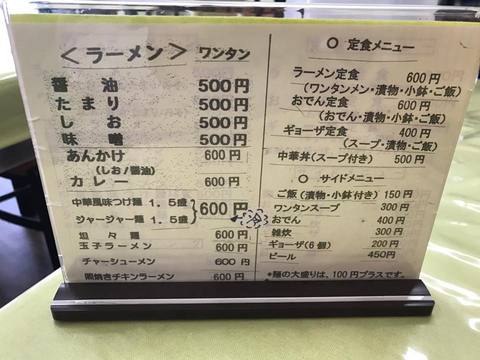 ＜ラーメン＞ ワンタン
醤油 500円
たまり 500円
しお 500円
味噌 500円
あんかけ 600円
(しお/醤油)
カレー 600円
中華風味つけ麺 1.5盛
ジャージャー麺 1.5盛 } 600円
坦々麺 600円
玉子ラーメン 600円
チャーシューメン 600円
照焼きチキンラーメン 600円
○ 定食メニュー
ラーメン定食 600円
(ワンタンメン・漬物・小鉢・ご飯)
おでん定食 600円
(おでん・漬物・小鉢・ご飯)
ギョーザ定食 400円
(スープ・漬物・ご飯)
中華丼(スープ付き) 500円
○ サイドメニュー
ご飯(漬物・小鉢付き) 150円
ワンタンスープ 300円
おでん 400円
雑炊 300円
ギョーザ(6個) 200円
ビール 450円
*麺の大盛りは、100円プラスです。